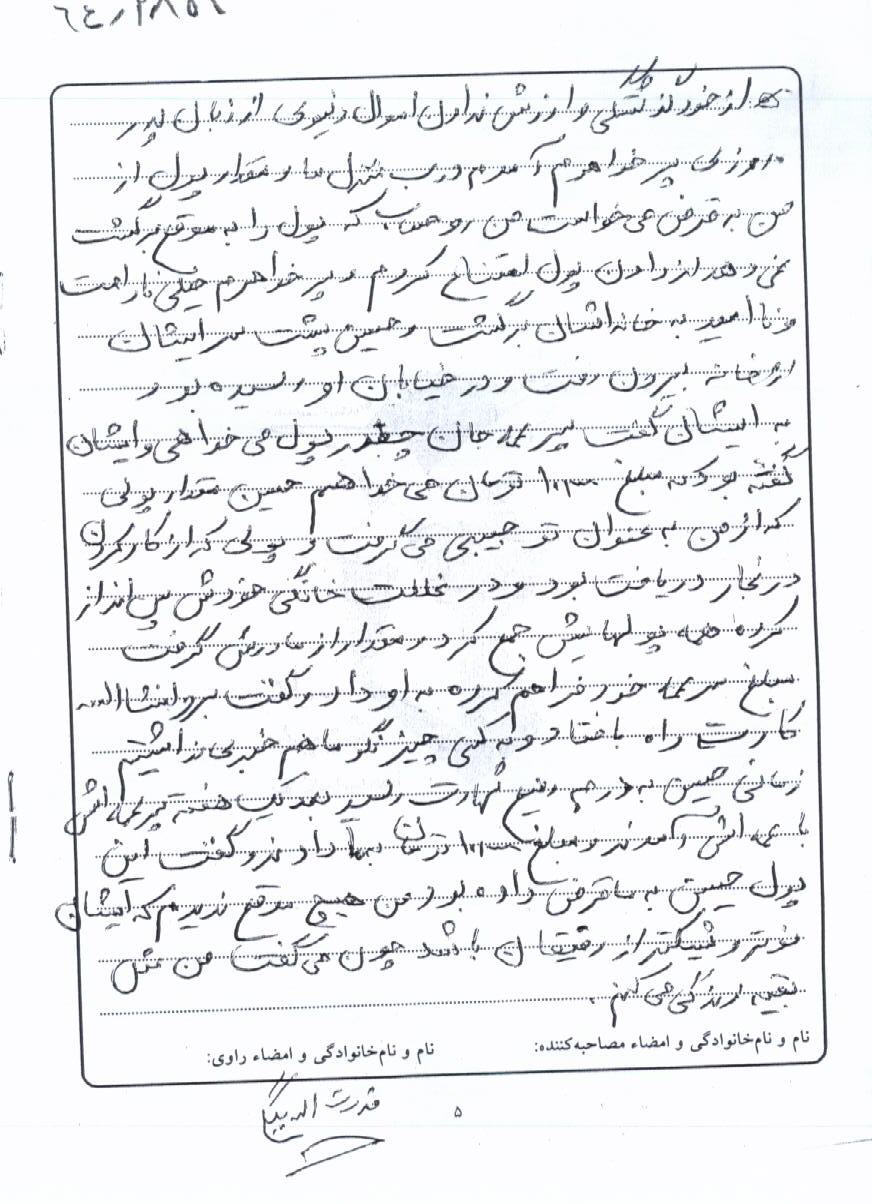 از خود گذشتگی و ارزش ندادن اموال دنیوی از زبان پدر
روزی پسر خواهرم آمدم درب منزل ما و مقدار پول از
من به قرض می‌خواست من رو حساب که پول را به موقع برگشت
نمی‌دهد از دادن پول امتناع کردم و پسر خواهرم خیلی ناراحت
و نا امید به خانه اشان برگشت و حسین پشت سر ایشان
از خانه بیرون رفت و در خیابان او رسیده بود و
به ایشان گفت پسر عمه جان چقدر پول می خواهی و ایشان
گفته بود که مبلغ تومان می خواهم حسین مقدار پولی
که از من به عنوان تو جیبی می گرفت و پولی که از کار کردن
در نجار دریافت بود و در خانگی خودش پس انداز
کرده همه پولهایش جمع کرد و مقدار از مادرش گرفت
مبلغ پسر عمه خود فراهم کرده به او داد و گفت برو انشااله
کارت راه بافتاد و به کسی چیز نگو ما هم خبری نداشتیم
زمانی حسین به درجه رفیع شهادت رسید بعد یک هفته پسر عمه اش
با عمه اش آمدند و مبلغ تومان بما دادند و گفت این
پول حسین به ما قرض داده بود من هیچ موقع ندیدم که ایشان
نوتر و شیکتر از رفیقان باشد چون می گفت من مثل
بقیه زندگی می کنم .
نام و نام‌خانوادگی و امضاء مصاحبه‌کننده: نام و نام‌خانوادگی و امضاء راوی:
قدرت اله
۵